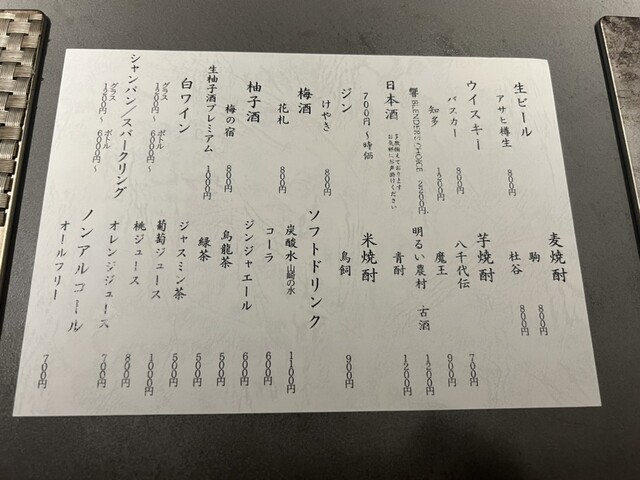 生ビール
アサヒ樽生 800円
ウイスキー
バスカー 800円
知多 1200円
響 BLENDER'S CHOICE 2200円
日本酒
700円～時価
多数揃えております
お気軽にお声掛けください
ジン
けやき 800円
梅酒
花札 800円
柚子酒
梅の宿 800円
生柚子酒プレミアム 1000円
白ワイン
グラス 1200円～ ボトル 6000円～
シャンパン/スパークリング
グラス 1200円～ ボトル 6000円～
麦焼酎
駒 800円
杜谷 800円
芋焼酎
八千代伝 700円
魔王 900円
明るい農村 古酒 1200円
青酎 1200円
米焼酎
鳥飼 900円
ソフトドリンク
炭酸水 山崎の水 1100円
コーラ 600円
ジンジャエール 600円
烏龍茶 500円
緑茶 500円
ジャスミン茶 500円
葡萄ジュース 1000円
桃ジュース 800円
オレンジジュース 700円
ノンアルコール
オールフリー 700円